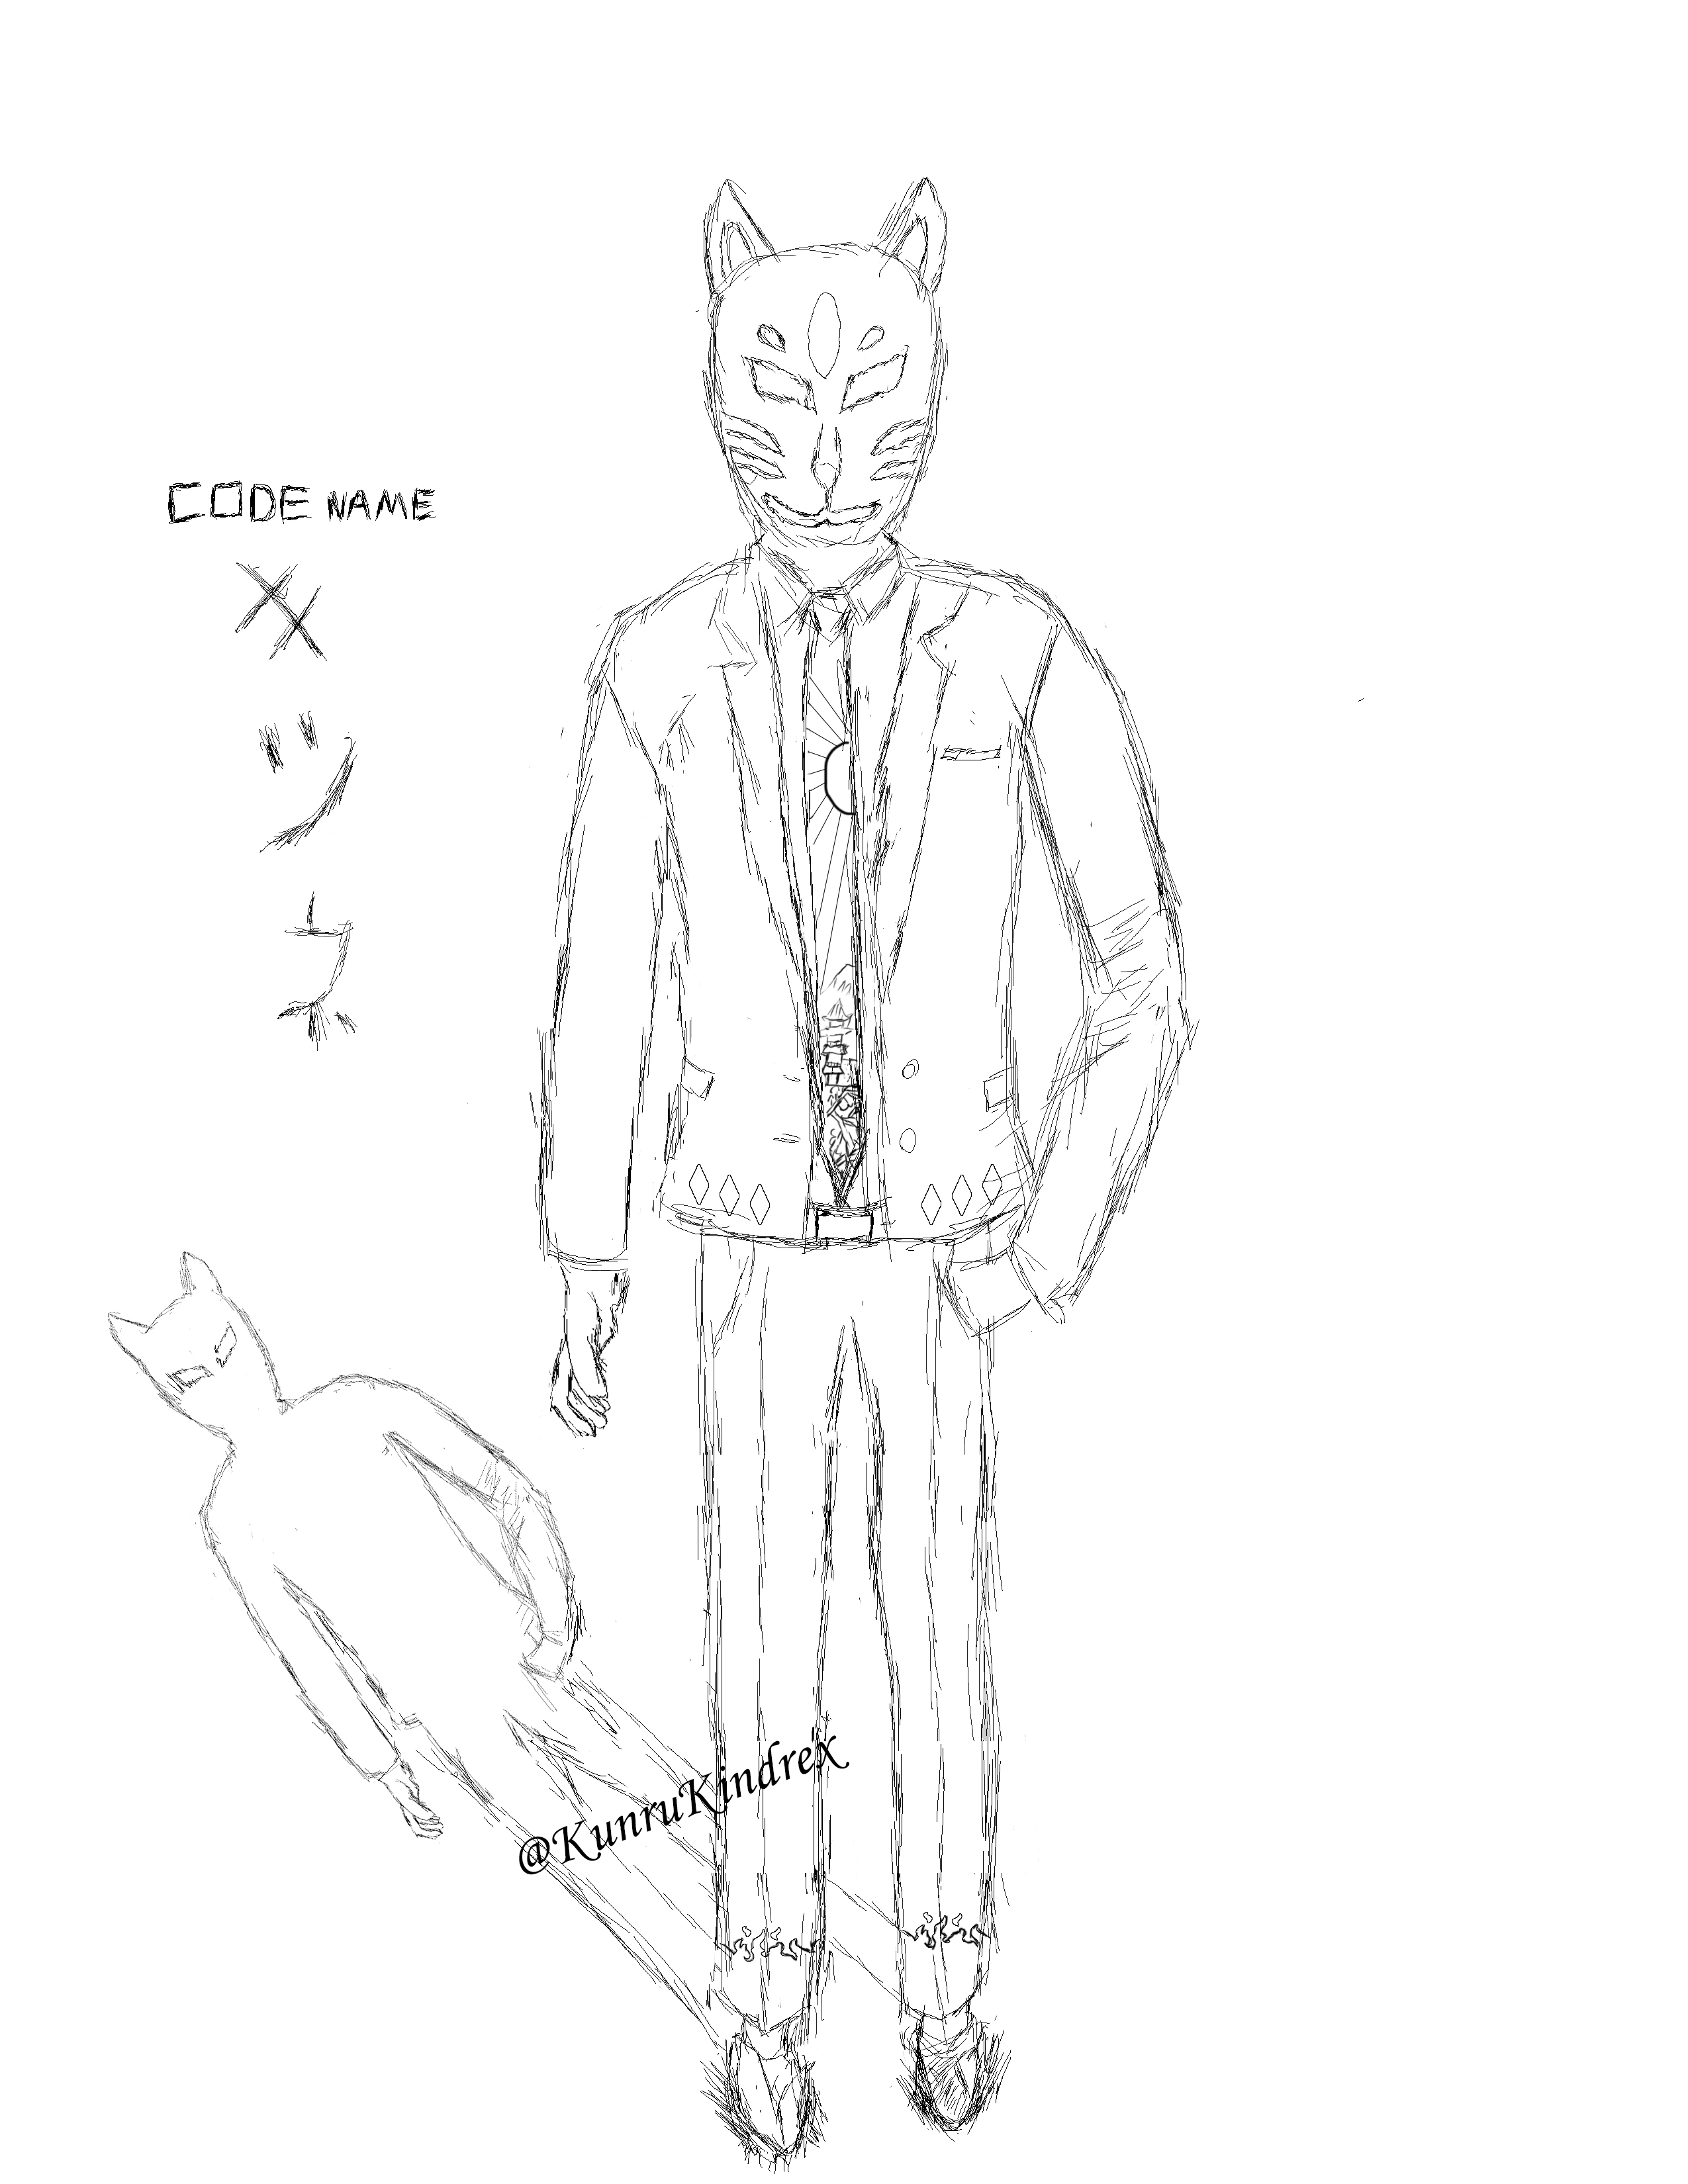 CODE NAME
キツネ
@KunruKindrex